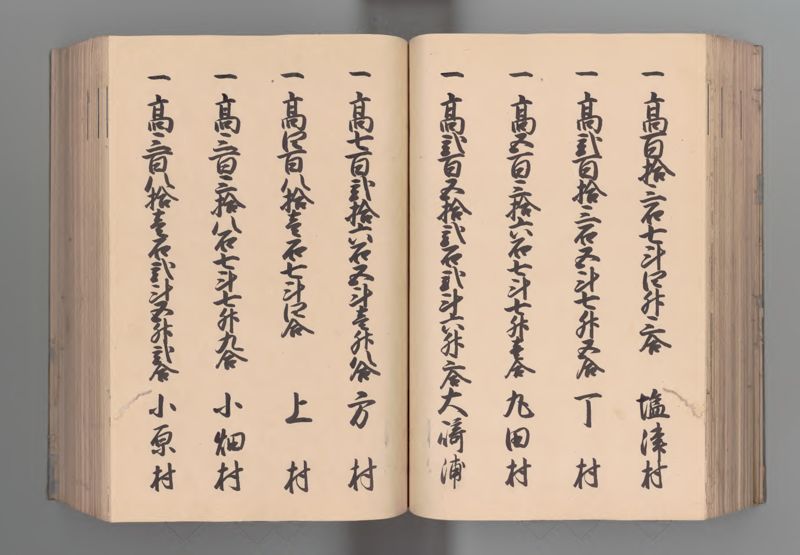 一 高百拾三石七斗四升三合 塩津村
一 高弐百拾三石五斗七升五合 丁村
一 高五百三拾六石七斗七升壱合 丸田村
一 高弐百五拾弐石弐斗六升三合 大崎浦
一 高七百弐拾六石五斗壱升八合 方村
一 高四百八拾壱石七斗四合 上村
一 高三百三拾八石七斗七升九合 小畑村
一 高三百八拾壱石弐斗五升弐合 小原村